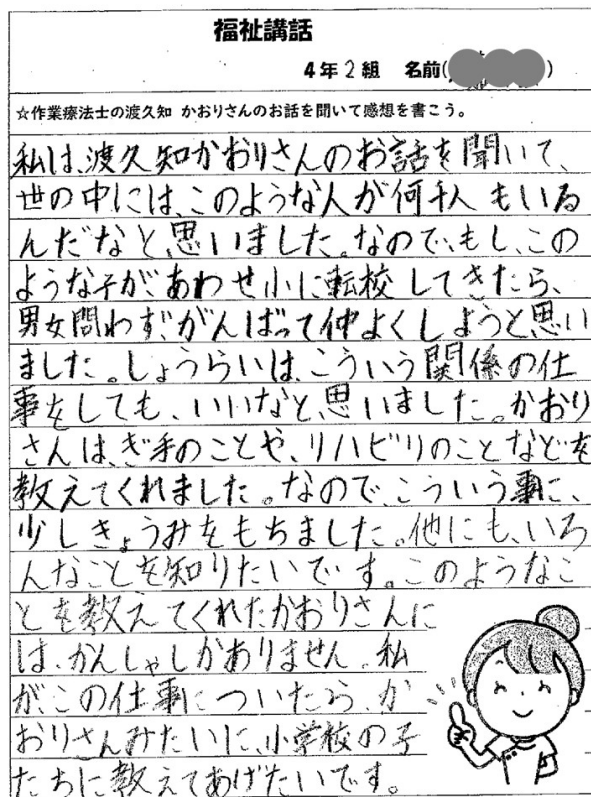 福祉講話
4年2組 名前( )
☆作業療法士の渡久知 かおりさんのお話を聞いて感想を書こう。
私は、渡久知かおりさんのお話を聞いて、
世の中には、このような人が何千人もいる
んだなと、思いました。なので、もし、この
ような子が、あわせ小に転校してきたら、
男女問わず、がんばって仲よくしようと、思い
ました。しょうらいは、こういう関係の仕
事をしても、いいなと、思いました。かおり
さんは、ぎ手のことや、リハビリのことなどを
教えてくれました。なので、こういう事に、
少しきょうみをもちました。他にも、いろ
んなことを知りたいです。このようなこ
とを教えてくれたかおりさんに
は、かんしゃしかありません。私
が、この仕事についたら、か
おりさんみたいに、小学校の子
たちに教えてあげたいです。